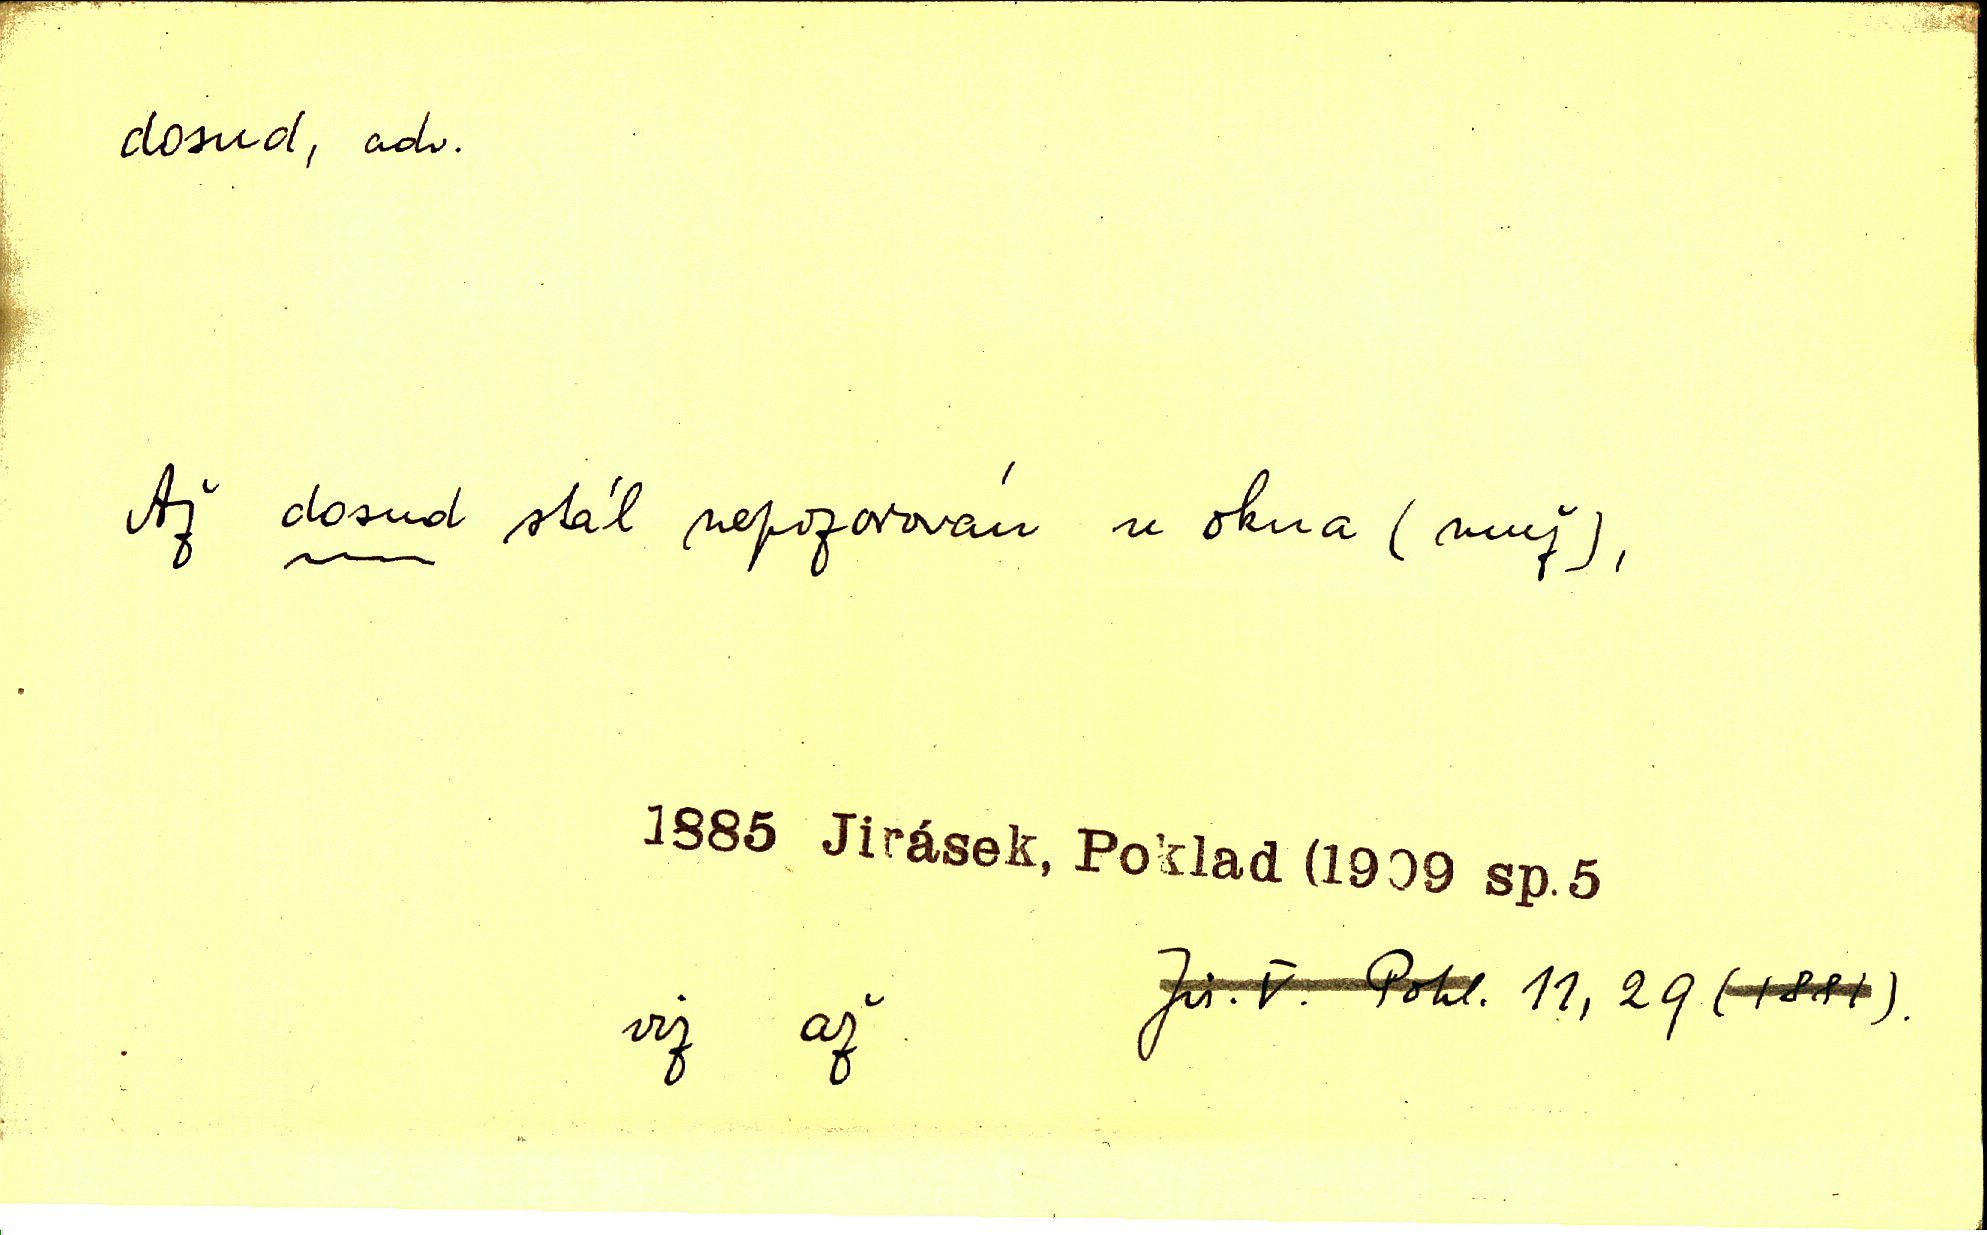 dosud, adv.
Až dosud stál nepozorován u okna (muž),
1885 Jirásek, Poklad (1909 sp.5
Jir. V. Pokl. 11, 29 (1881).
viz až